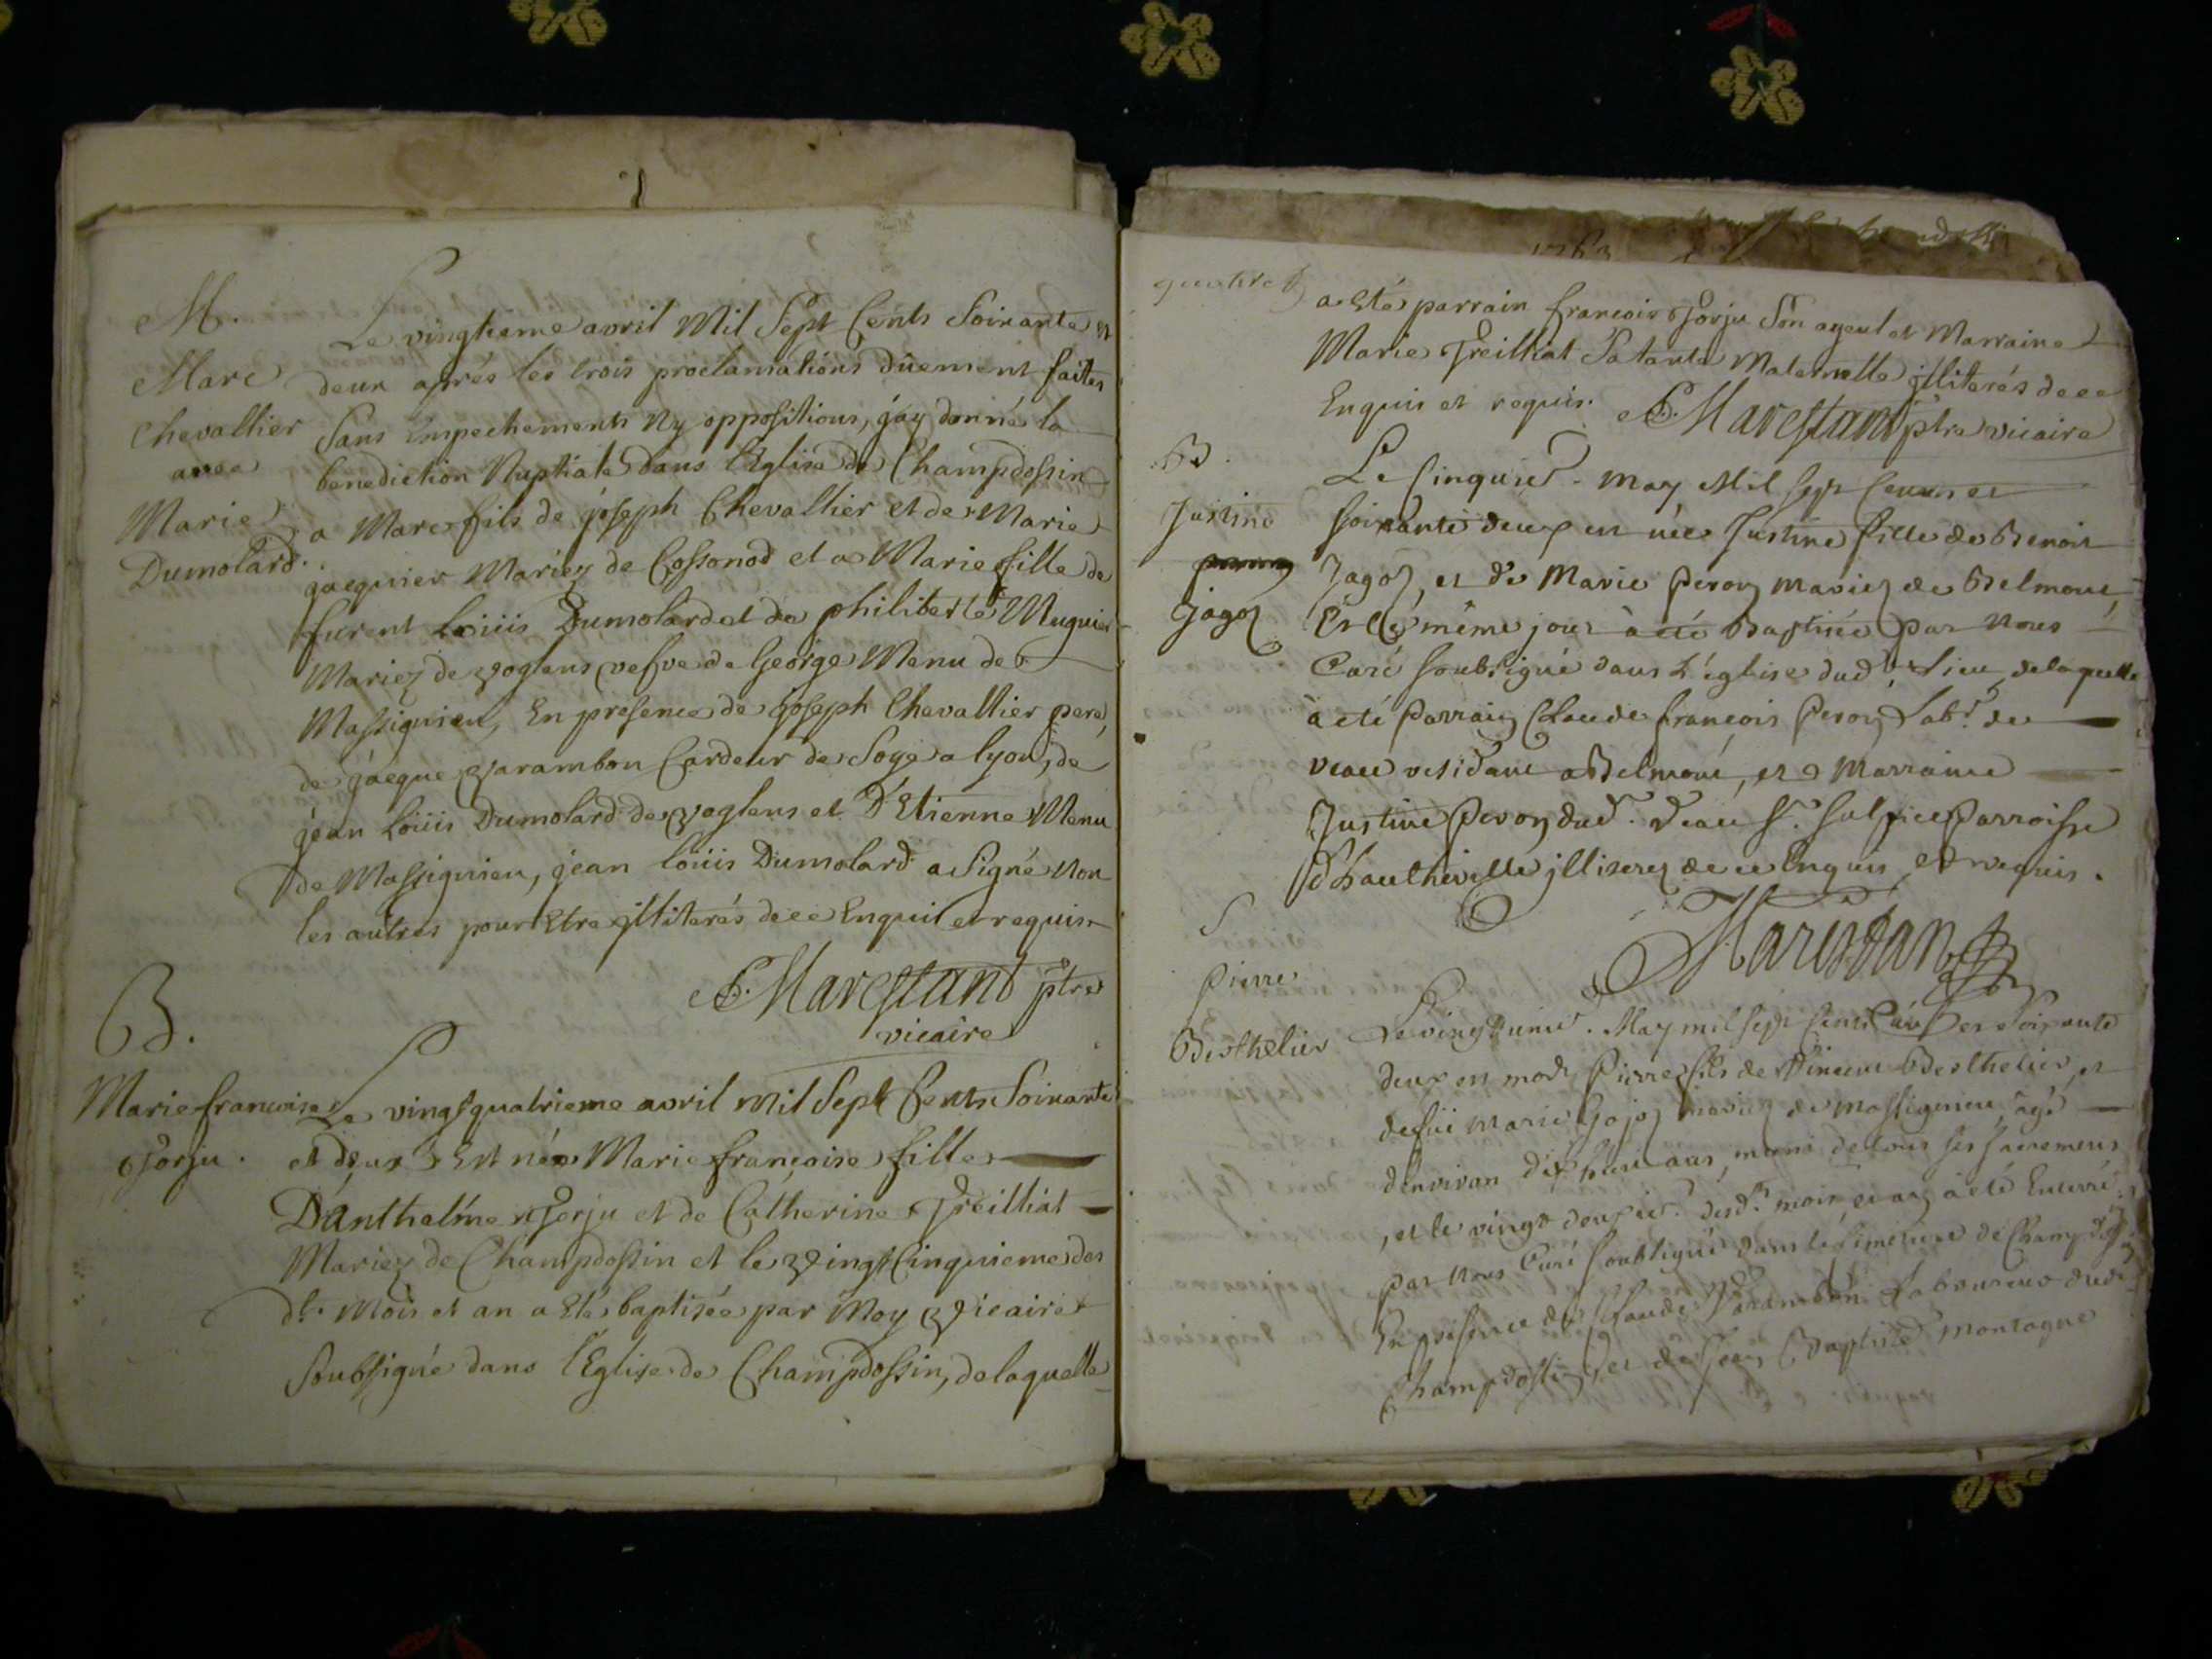 M.
Marc
Chevallier
avec
Marie
Dumolard.
Le vingtieme avril Mil Sept Cents Soixante et
deux aprés les trois proclamations düement faites
Sans Empechements Ny oppositions, j'ay donné la
benediction Nuptiale dans l'Eglise de Champdossin
a Marc fils de joseph Chevallier et de Marie
jacquier Mariez de Cossonod et a Marie fille de
furent Loüis Dumolard et de philiberte Muguier
Mariez de voglens vefve de George Menu de
Massignieu, En presence de joseph Chevallier pere,
de jacque varambon Cardeur de Soye a lyon, de
jean Loüis Dumolard de voglens et D'Etienne Menu
de Massignieu, jean loüis Dumolard a Signé Non
les autres pour Etre jlliterés de ce Enquis et requis
Marestant ptre
vicaire
B.
Marie francoise
jorju.
Le vingt quatrieme avril Mil Sept Cents Soixante
et deux Est née Marie françoise fille
D'Anthelme jorju et de Catherine Treilliat
Mariez de Champdossin et le vingt Cinquieme des
dt. Mois et an a Eté baptisée par Moy vicaire
Soubsigné dans l'Eglise de Champdossin, de laquelle
1763
a Eté parrain francois jorju Son ayeul et Marraine
Marie Treilliat Sa tante Maternelle jlliterés de ce
Enquis et requis. Marestant ptre vicaire
B.
Justine
jagoz
Le Cinquie. may Mil Sept Cents et
soixante deux est née Justine fille de Benoit
Jagoz, et de Marie peroz mariez de Belmont,
Et le même jour à été Baptisée par Nous
Curé soubsigné dans L'église dud. Lieu, de laquelle
à été Parrain Claude François peroz Labr. de
veaux residant a Belmont, et Marraine
Justine Peroz dud. veaux St. Sulpice Parroisse
d'hautheville jlliterez de ce Enquis et requis.
Marestan
S
Pierre
Berthelier
Le vingt unie. May mil sept Cents et Soixante
deux en mort Pierre fils de Vincent Berthelier, et
de füe Marie Gojoz mariez de Massignieu, agé
d'environ dix huit ans, muni de tous ses sacremens
, et le vingt deuxie. desd. mois, et an à été Enterré
par Nous Curé soubsigné dans le Simetiere de Champdossin
En presence de Claude Varambon Laboureur dud.
Champdossin, et de Jean Baptiste montagne